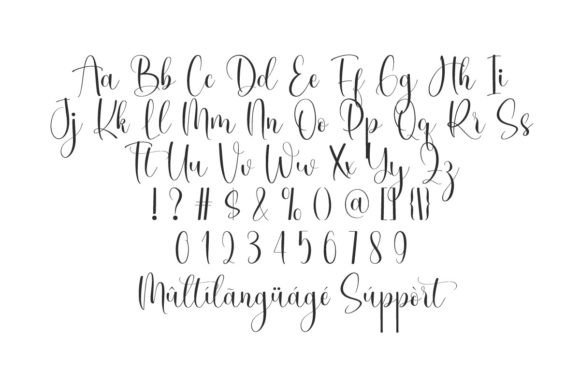 Aa Bb Cc Dd Ee Ff Gg Hh Ii
Jj Kk Ll Mm Nn Oo Pp Qq Rr Ss
Tt Uu Vv Ww Xx Yy Zz
! ? # $ & % () @ [] {}
0 1 2 3 4 5 6 7 8 9
Mûltilãngüágé Súppòrt